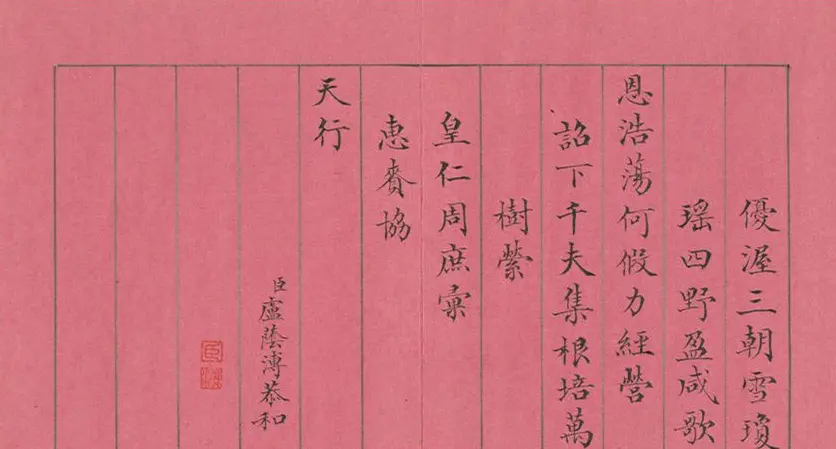 優渥三朝雪瓊
瑶四野盈咸歌
恩浩蕩何假力經營
詔下千夫集根培萬
樹縈
皇仁周庶彙
惠賚協
天行
臣盧蔭溥恭和
臣